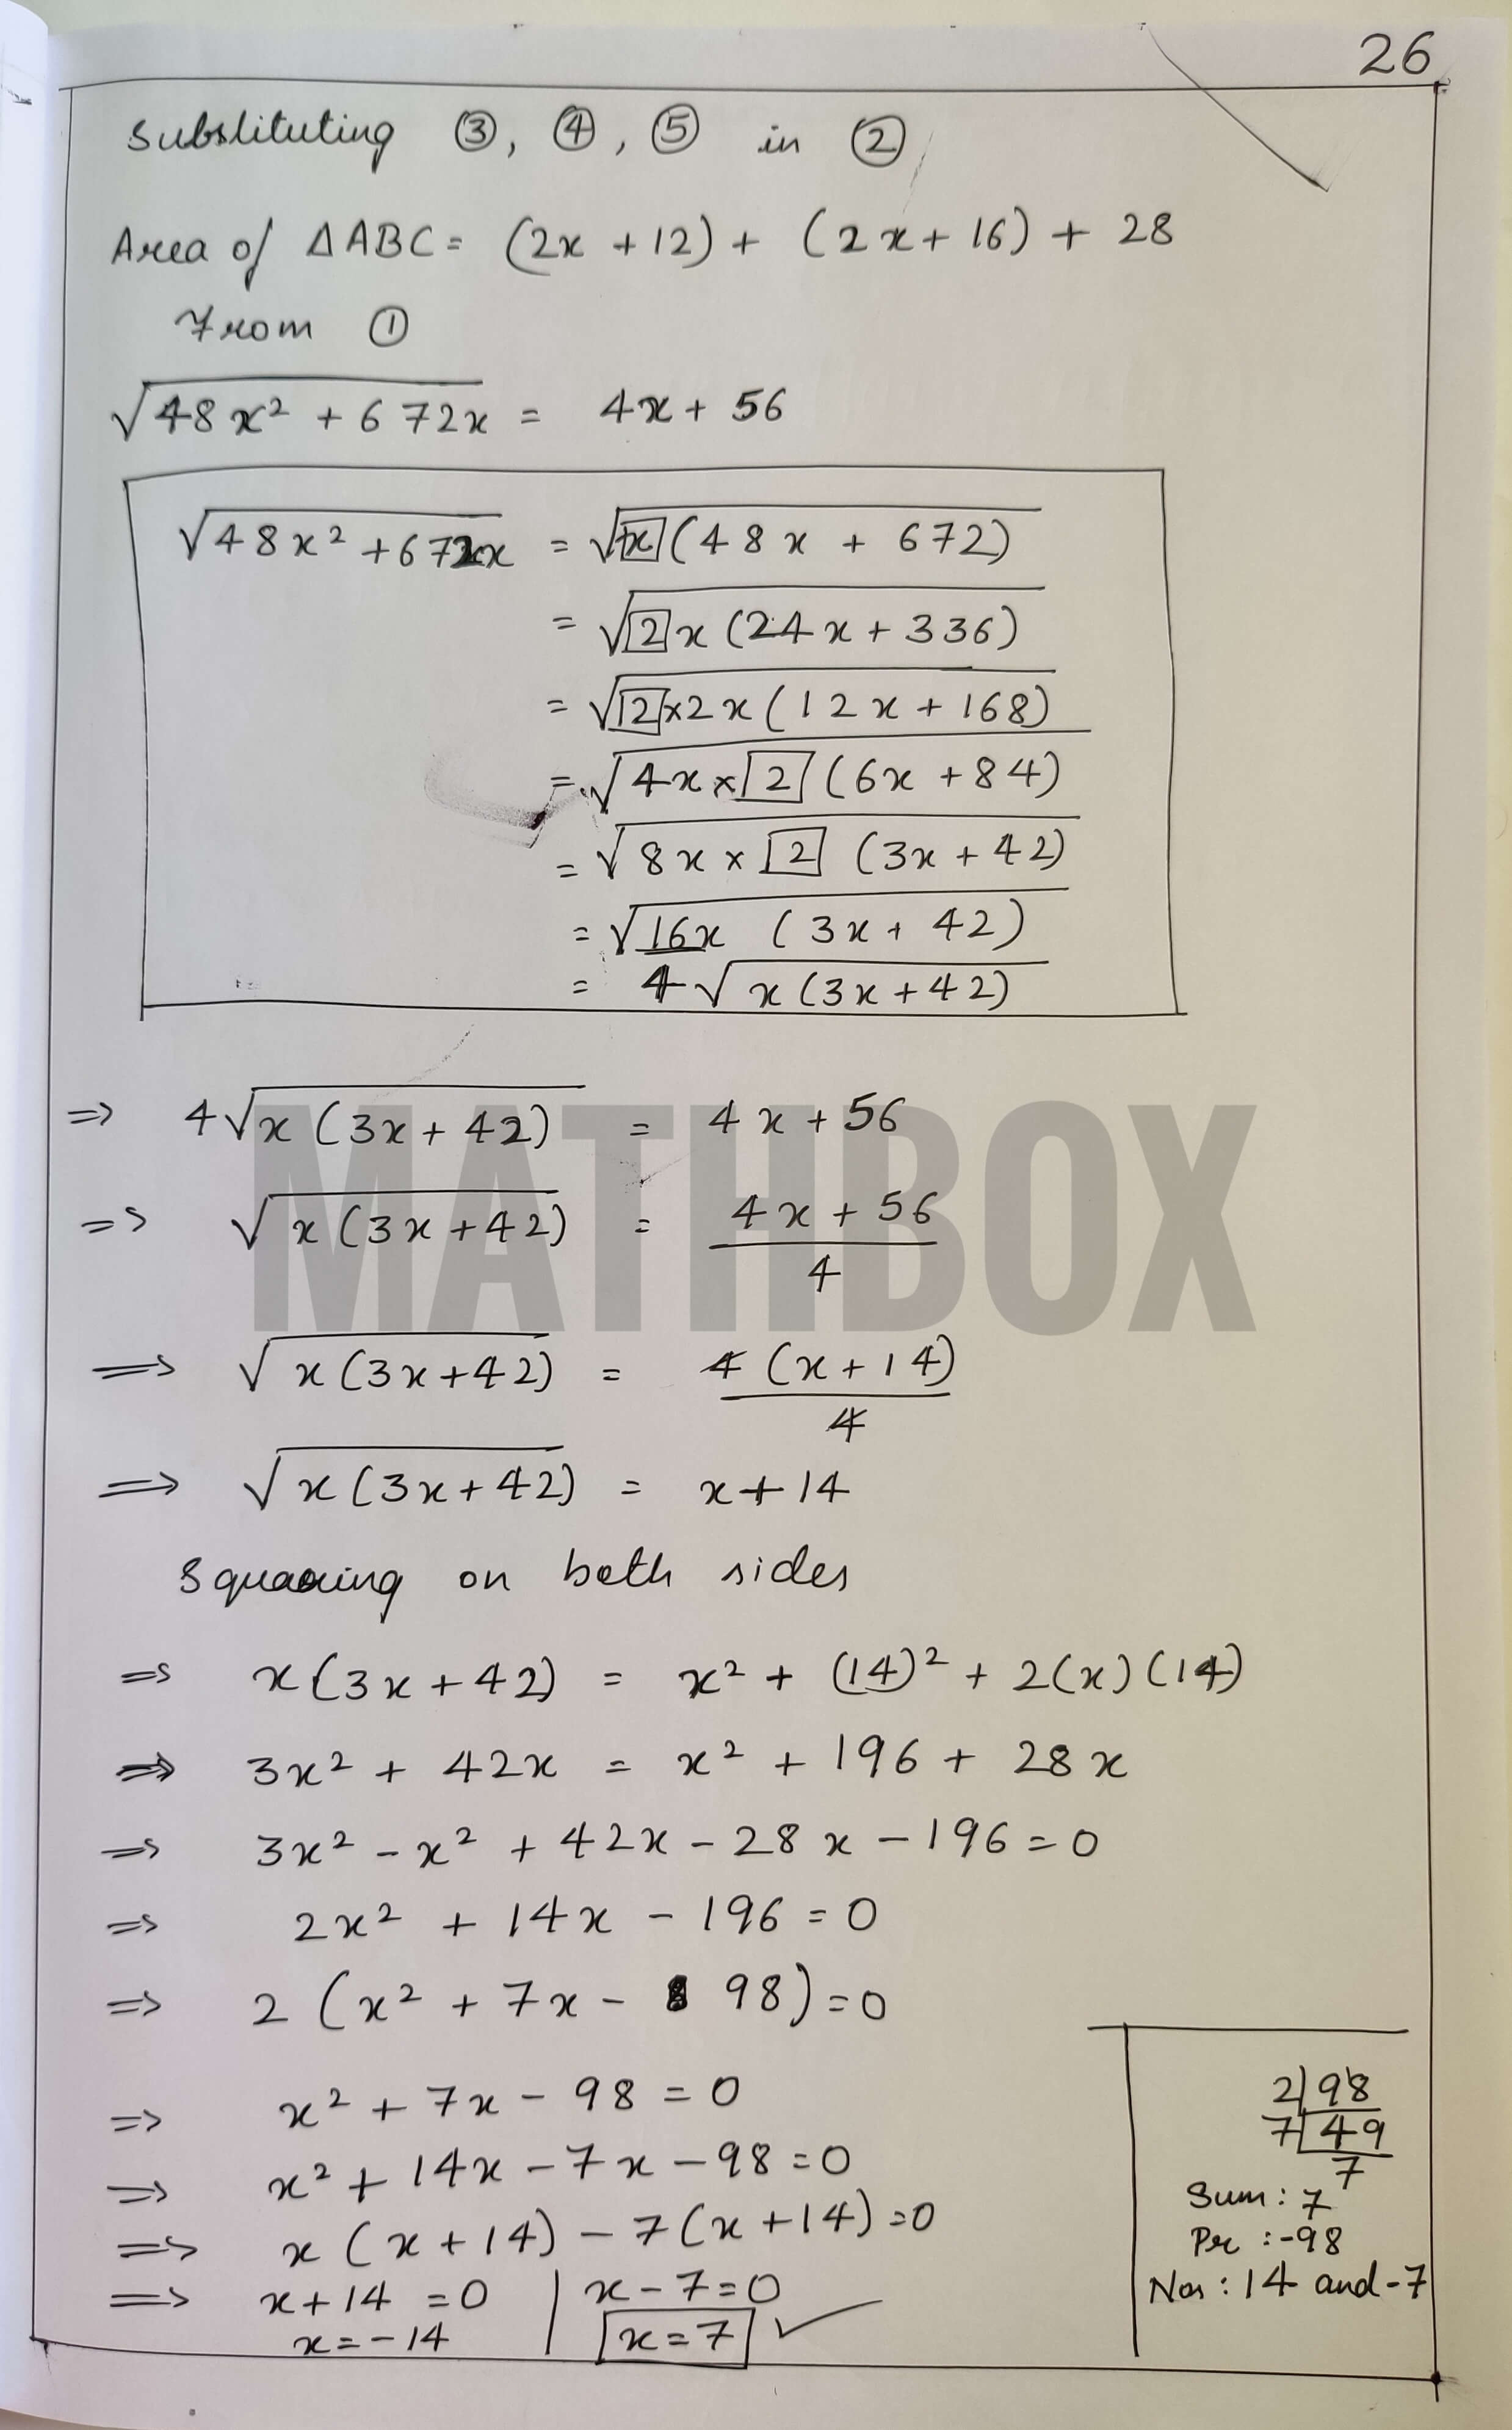 26
Substituting ③, ④, ⑤ in ②
Area of ΔABC = (2x + 12) + (2x + 16) + 28
From ①
√(48x² + 672x) = 4x + 56
√(48x² + 672x) = √(x(48x + 672))
= √(2x(24x + 336))
= √(2×2x(12x + 168))
= √(4x × 2(6x + 84))
= √(8x × 2(3x + 42))
= √(16x(3x + 42))
= 4√(x(3x + 42))
=> 4√(x(3x + 42)) = 4x + 56
=> √(x(3x + 42)) = (4x + 56)/4
=> √(x(3x + 42)) = 4(x + 14)/4
=> √(x(3x + 42)) = x + 14
MATHBOX
Squaring on both sides
=> x(3x + 42) = x² + (14)² + 2(x)(14)
=> 3x² + 42x = x² + 196 + 28x
=> 3x² - x² + 42x - 28x - 196 = 0
=> 2x² + 14x - 196 = 0
=> 2(x² + 7x - 98) = 0
=> x² + 7x - 98 = 0
=> x² + 14x - 7x - 98 = 0
=> x(x + 14) - 7(x + 14) = 0
=> x + 14 = 0 | x - 7 = 0
x = -14 | x = 7 ✓
2|98
7|49
7
Sum : 7
Pr : -98
Nos : 14 and -7